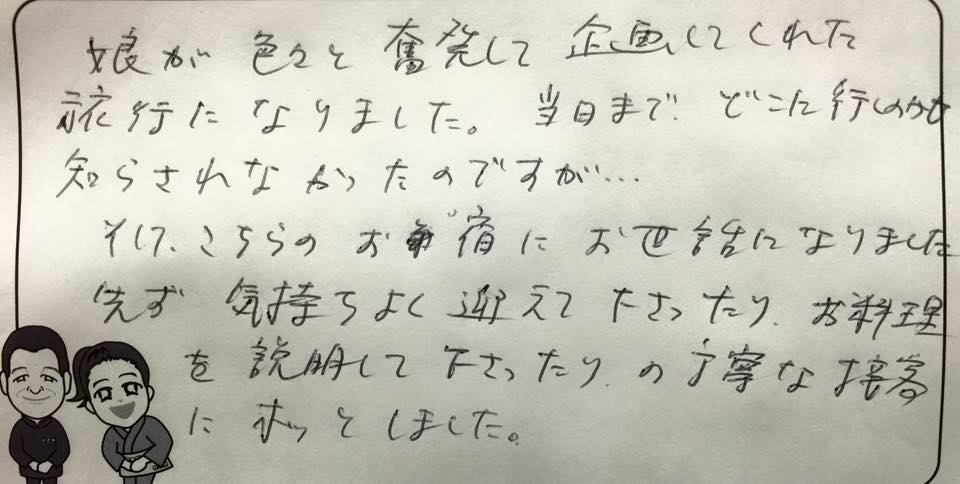 娘が色々と奮発して企画してくれた
旅行になりました。当日まで、どこに行くのかも
知らされなかったのですが…
そして、こちらのお宿にお世話になりました
先ず気持ちよく迎えて下さったり、お料理
を説明して下さったり、の丁寧な接客
にホッとしました。